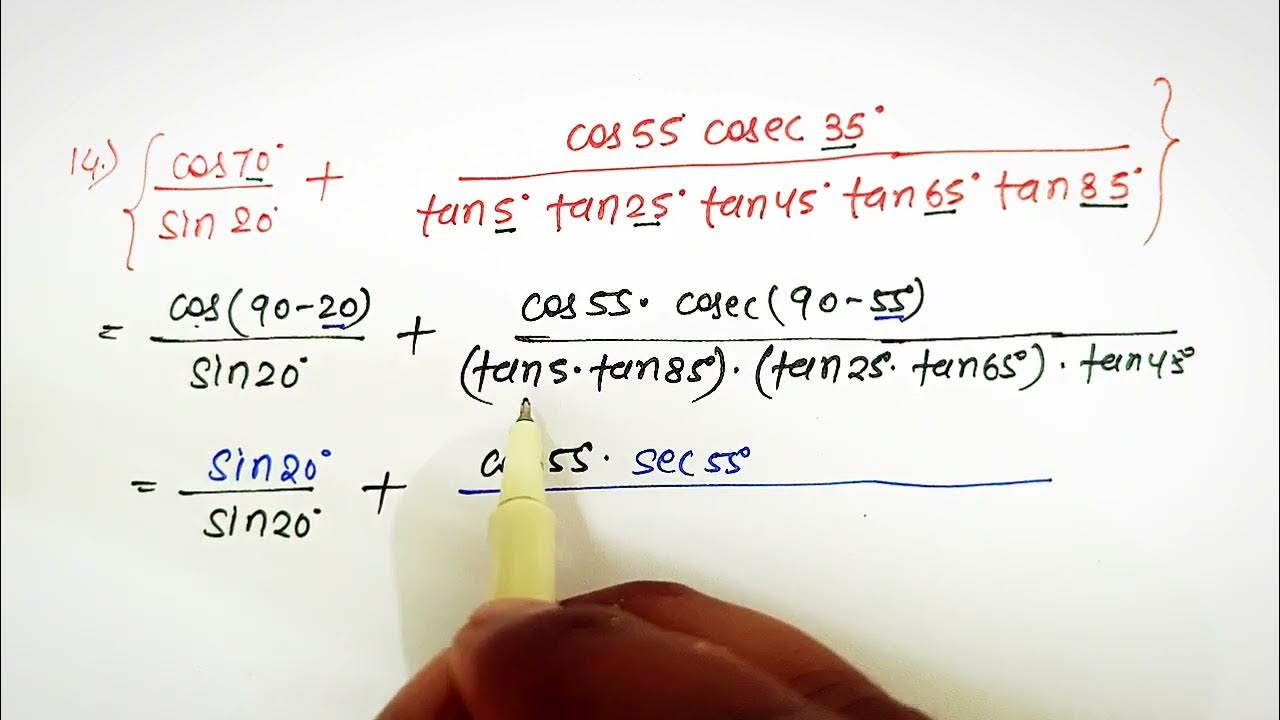 14.) { cos70° / sin 20° + cos 55° cosec 35° / tan 5° tan 25° tan 45° tan 65° tan 85° }
= cos(90-20) / sin20° + cos55· cosec(90-55°) / (tan5·tan85°)·(tan25·tan65°)·tan45°
= sin20° / sin20° + 55· sec55°